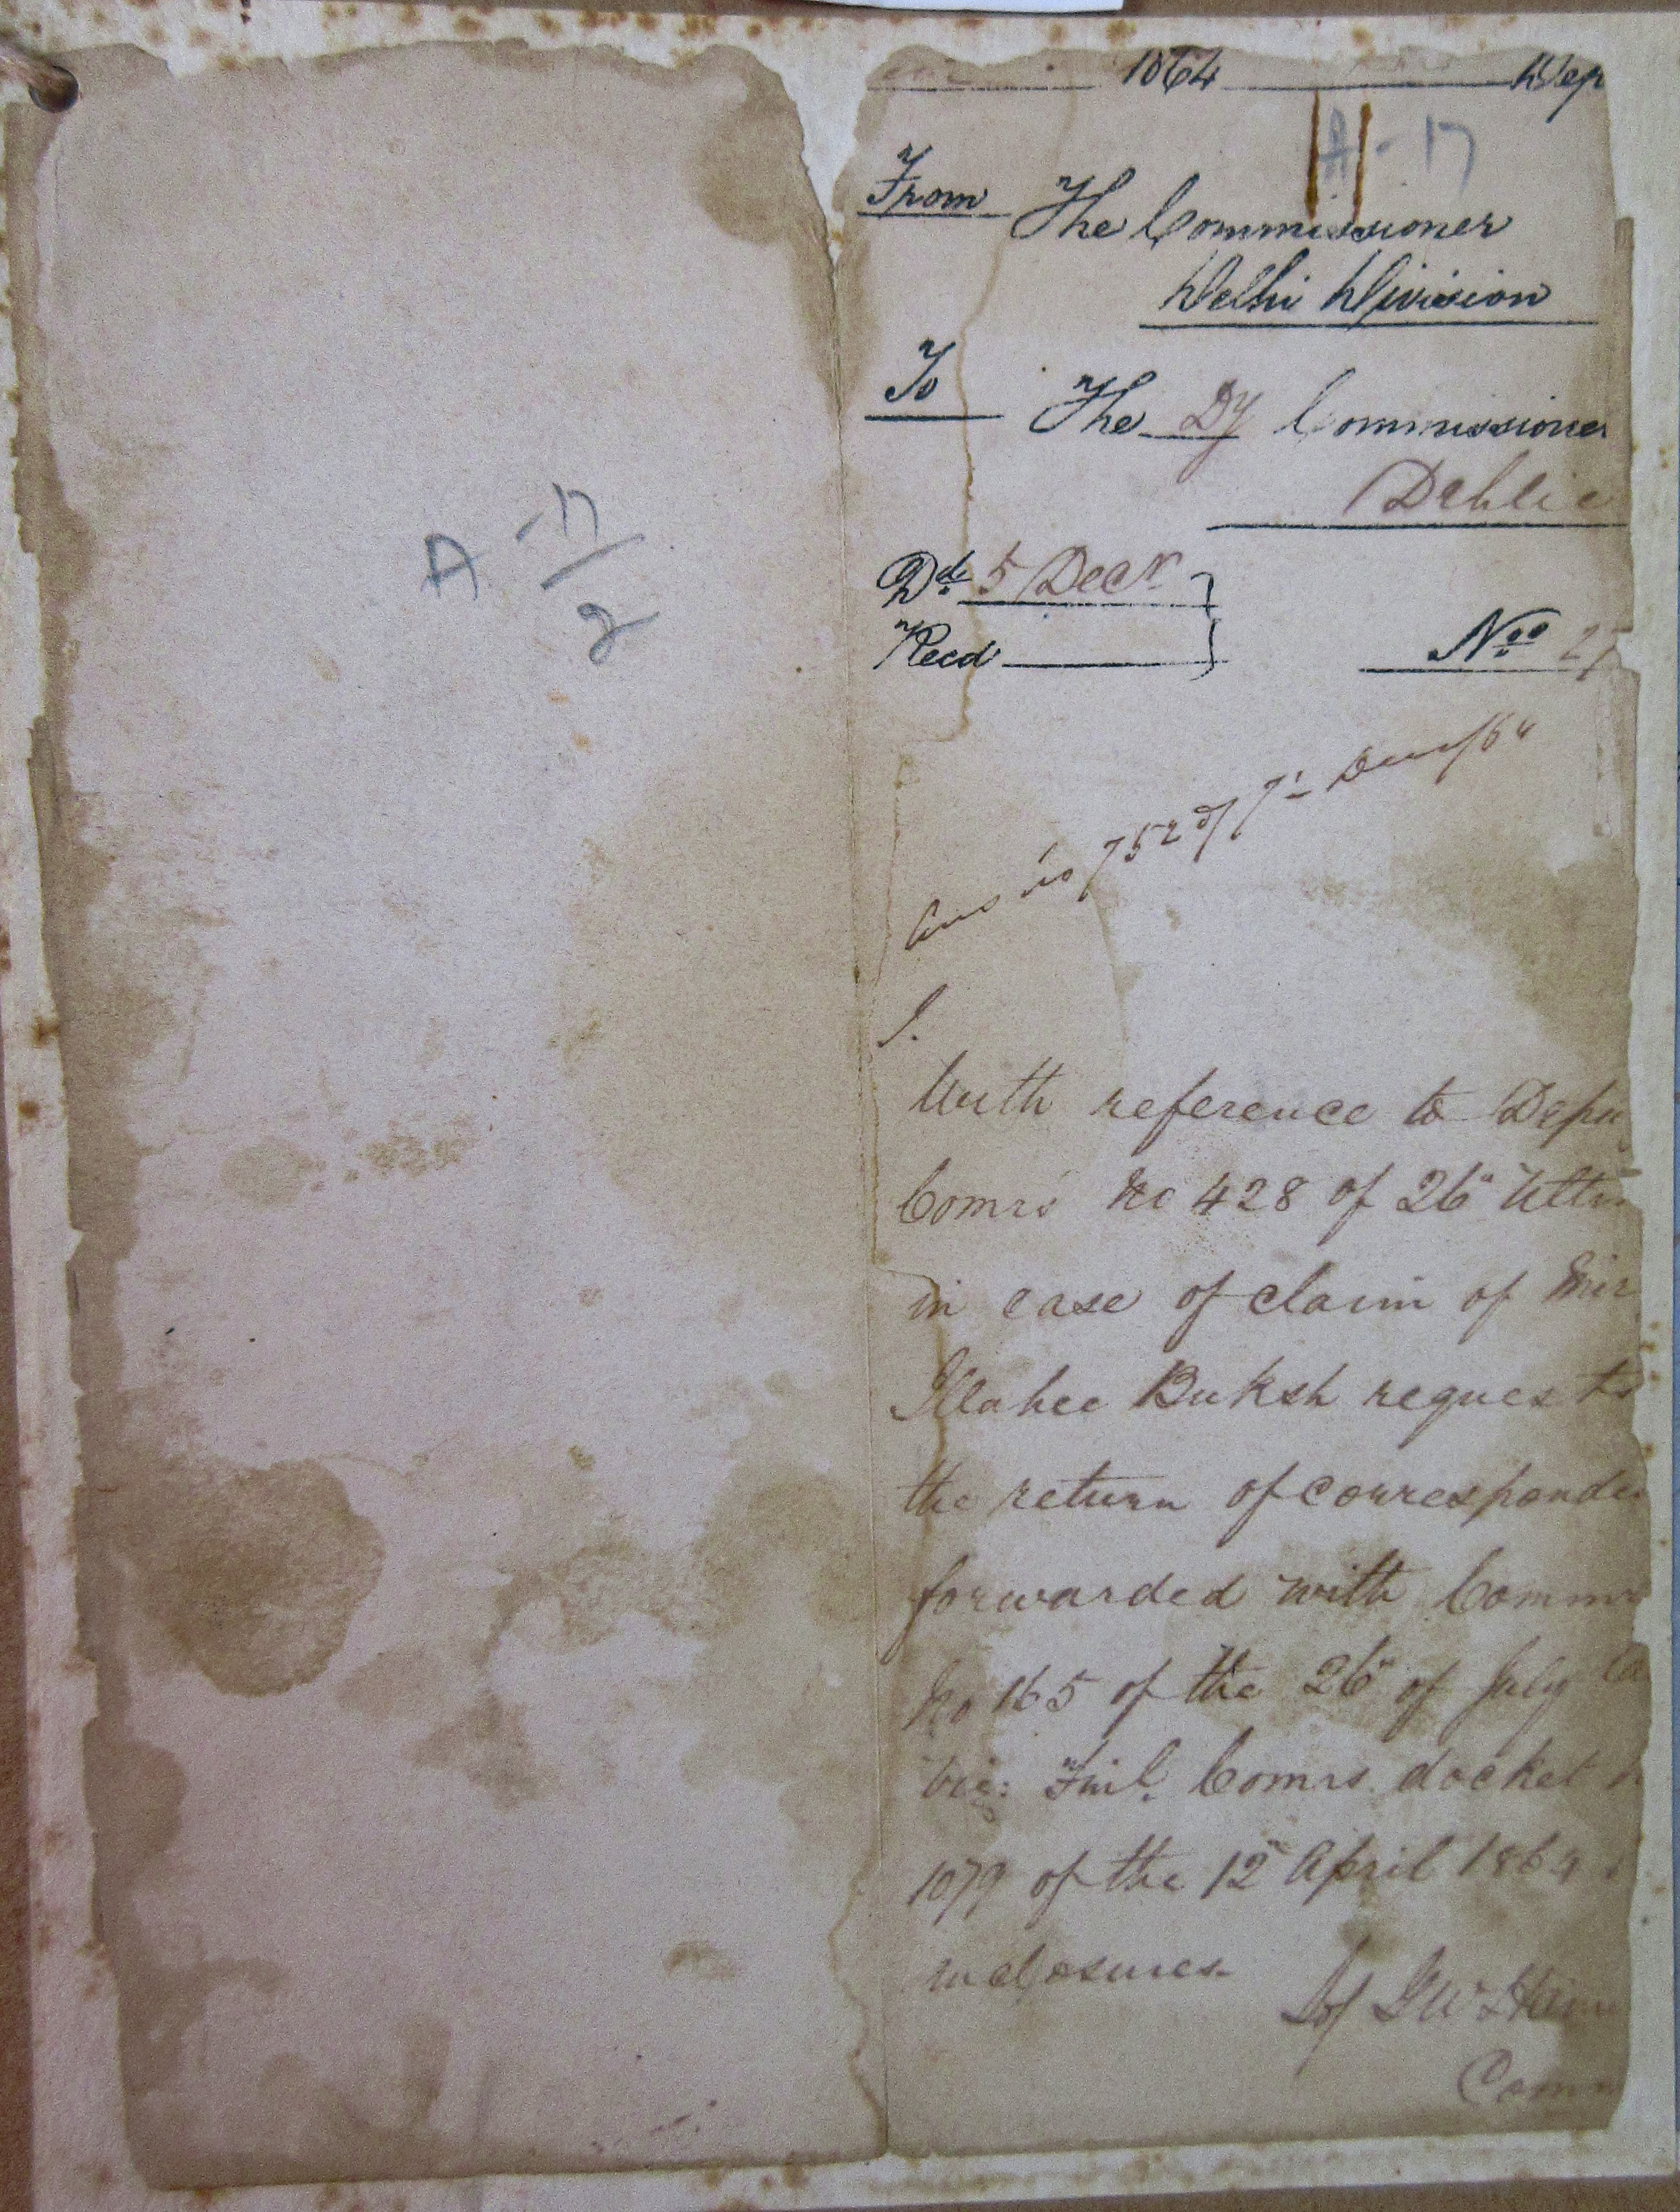 A -17/2
1864 Dep
A - 17
From The Commissioner
Delhi Division
To The Dy Commissioner
Dehlie
Dd. 5 Decr
Recd No. 27
Ans no 752 of 7th Decr/64
With reference to Depu
Comrs No 428 of 26th Ulti
in case of claim of Mir
Illahee Buksh requests
the return of corresponde
forwarded with Commr
No 165 of the 26th of July la
viz: Finl. Comrs. docket
1079 of the 12th April 1864
inclosures.
Comm